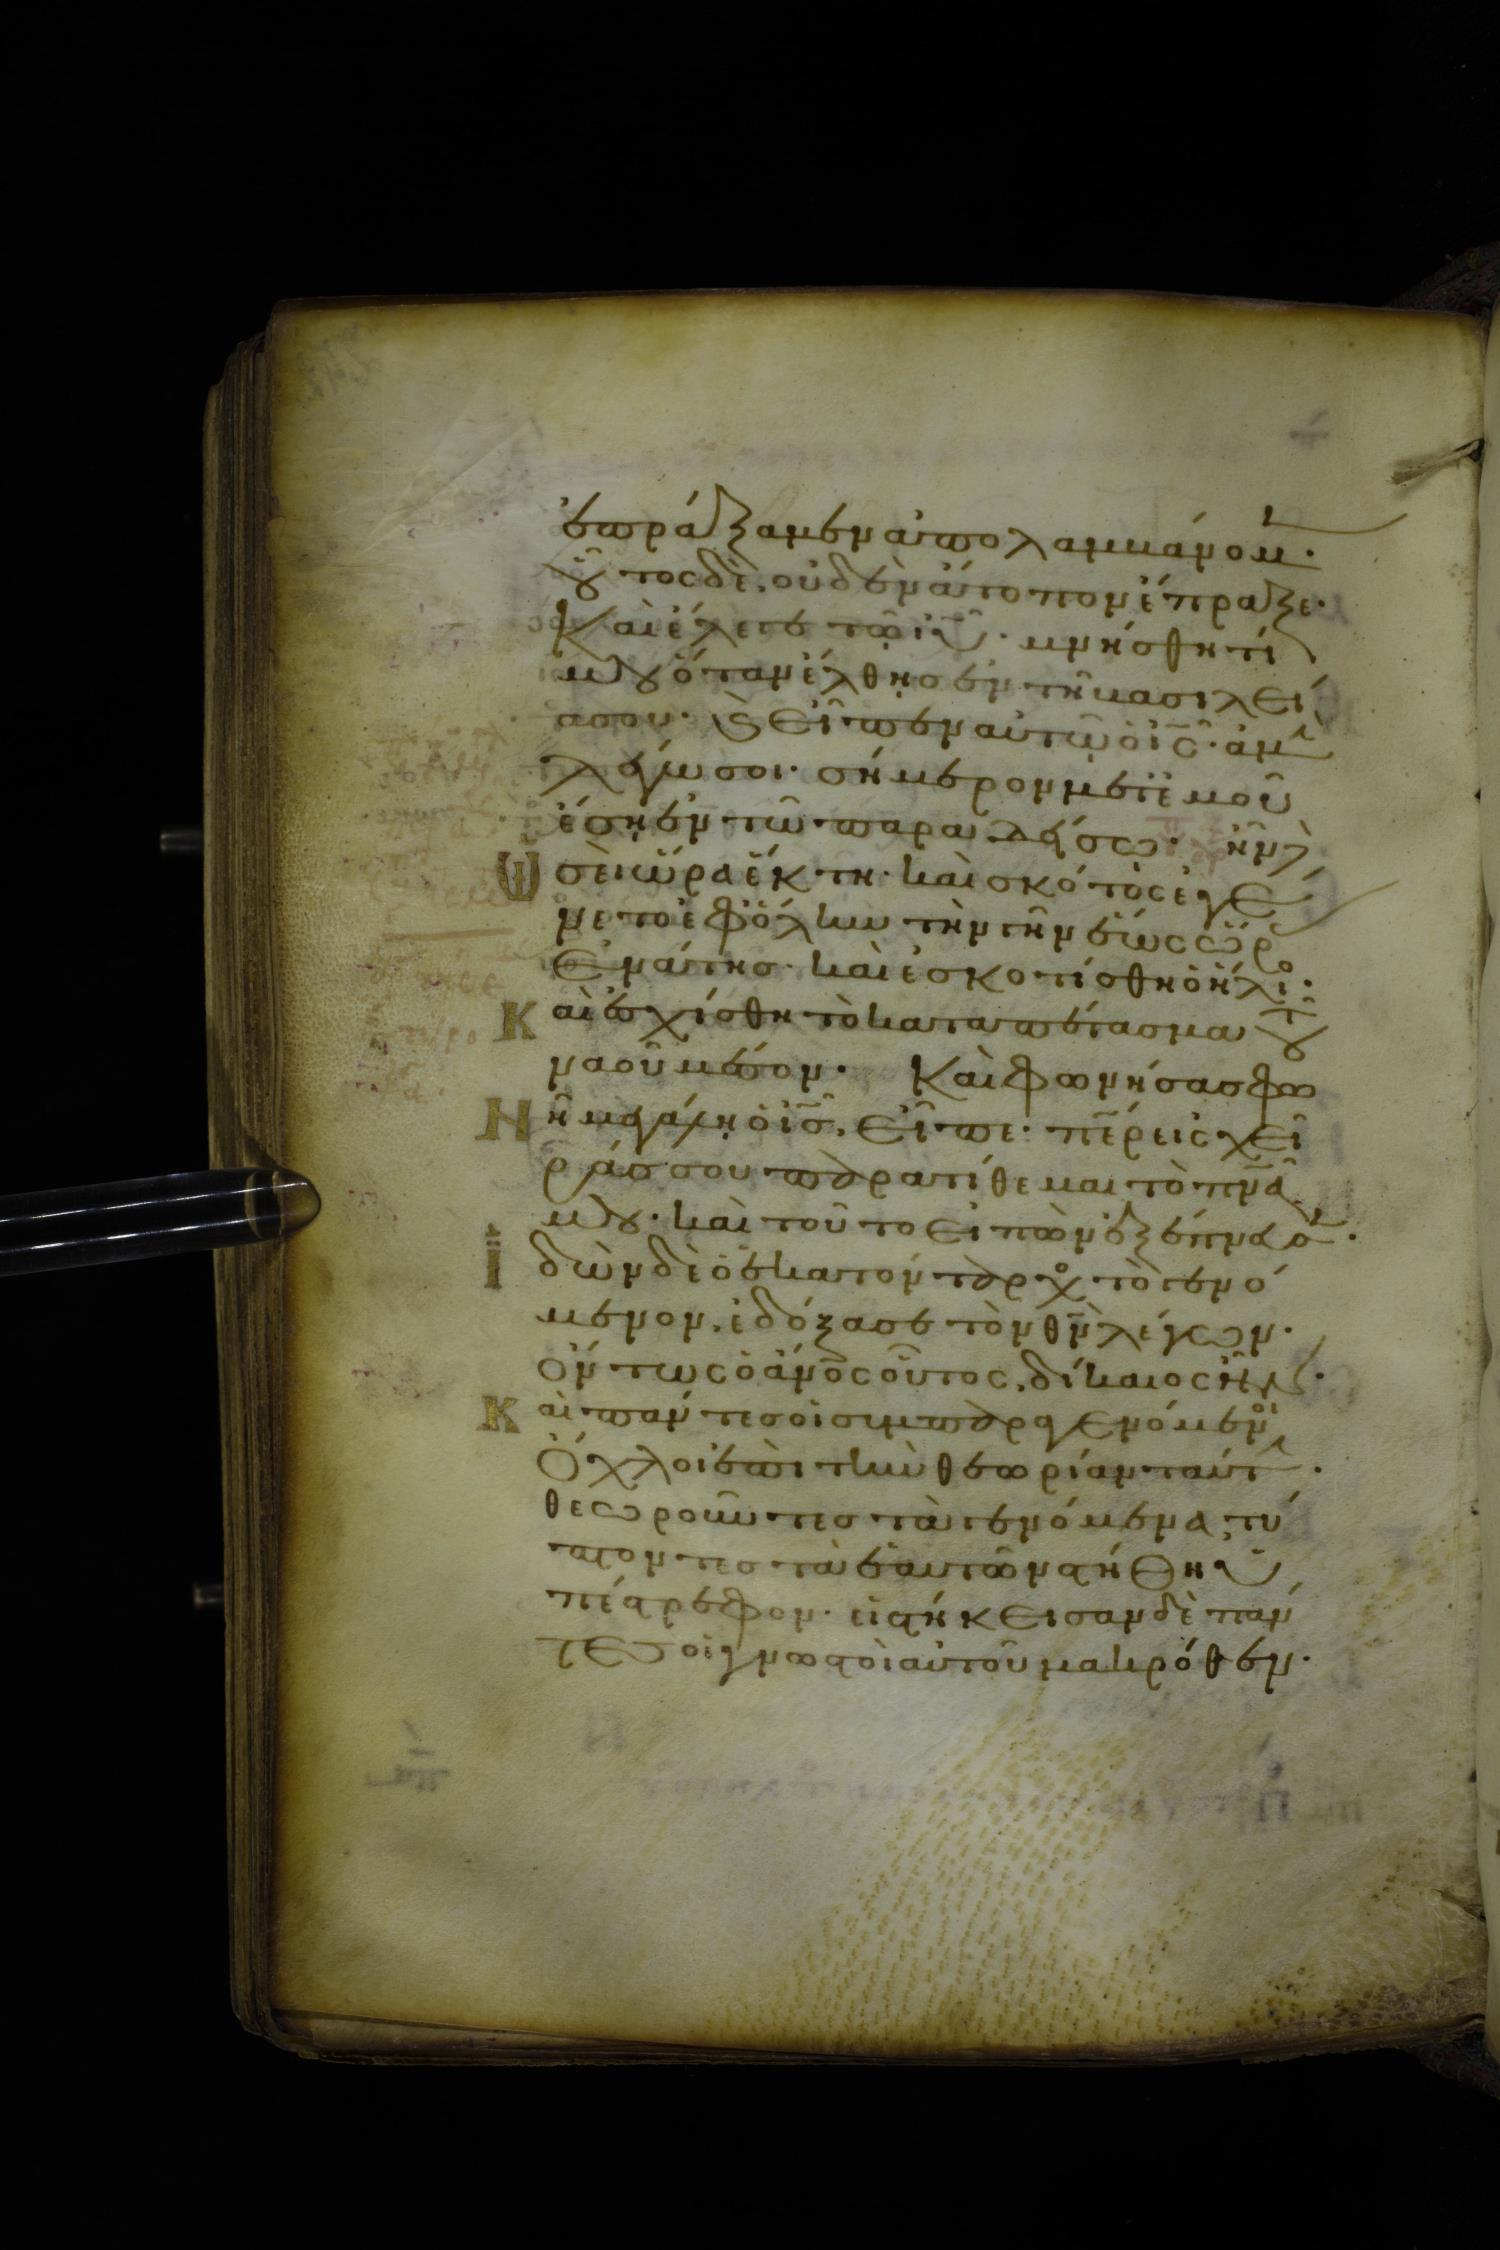 ἐπράξαμεν ἀπολαμβάνομ·
οὗτος δὲ, οὐδὲν ἄτοπον ἔπραξε·
Καὶ ἔλεγε τῷ ιῦ· μνήσθητί
μου ὅταν ἔλθῃς ἐν τῇ βασιλεί
ᾳ σου· Καὶ εἶπεν αὐτῷ ὁ ις· ἀμὴ
λέγω σοι· σήμερον μετ' ἐμοῦ
ἔσῃ ἐν τῷ παραδείσω· ἦν δ
ὡσεὶ ὥρα ἕκτη· καὶ σκότος ἐγέ
νετο ἐφ' ὅλην τὴν γῆν ἕως ὥρ
ἐννάτης· καὶ ἐσκοτίσθη ὁ ἥλιο·
Καὶ ἐσχίσθη τὸ καταπέτασμα τοῦ
ναοῦ μέσον· Καὶ φωνήσας φω
νῇ μεγάλῃ ὁ ις, εἶπε· περ εἰς χεῖ
ράς σου παρατίθεμαι τὸ πνα
μου· καὶ τοῦτο εἰπὼν ἐξέπνευσ·
ἰδὼν δὲ ὁ ἑκατοντάρχο τὸ γενό
μενον, ἐδόξασε τὸν θν λέγων·
Ὄντως ὁ ανος οὗτος, δίκαιος ἦν·
Καὶ πάντες οἱ συμπαραγενόμενοι
ὄχλοι ἐπὶ τὴν θεωρίαν ταύτ·
θεωροῦντες τὰ γενόμενα, τύ
πτοντες τὰ ἑαυτῶν στήθη ὑ
πέστρεφον· εἱστήκεισαν δὲ πάν
τες οἱ γνωστοὶ αὐτοῦ μακρόθεν·